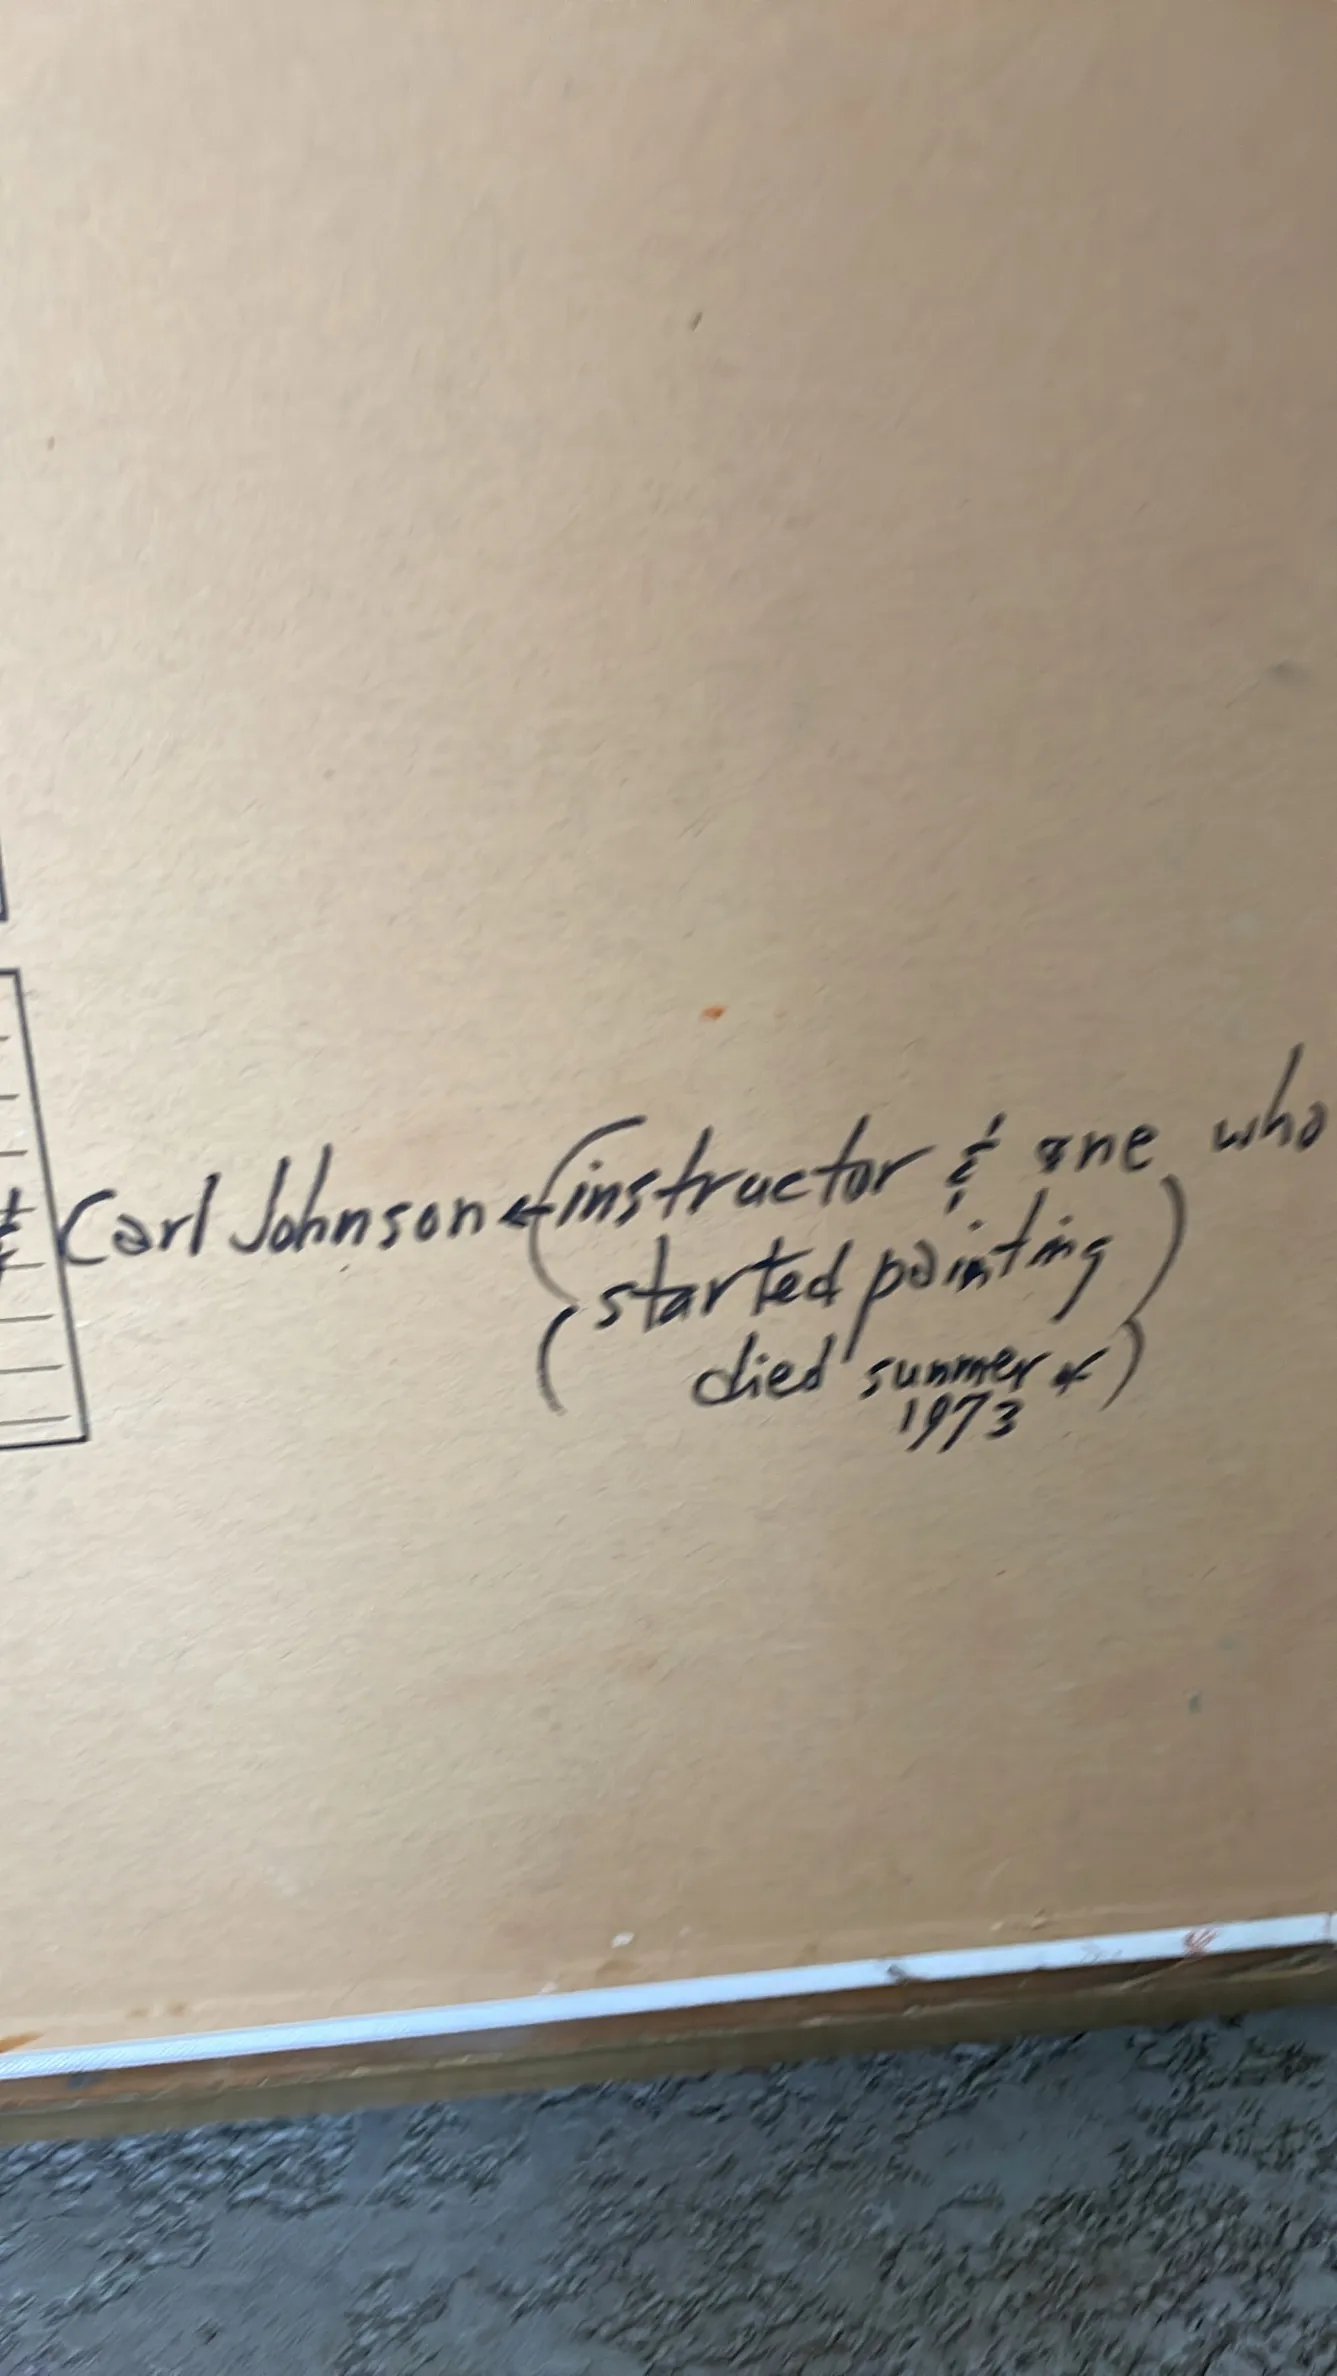 Carl Johnson ← (instructor & one who
started painting)
(died summer of)
1973